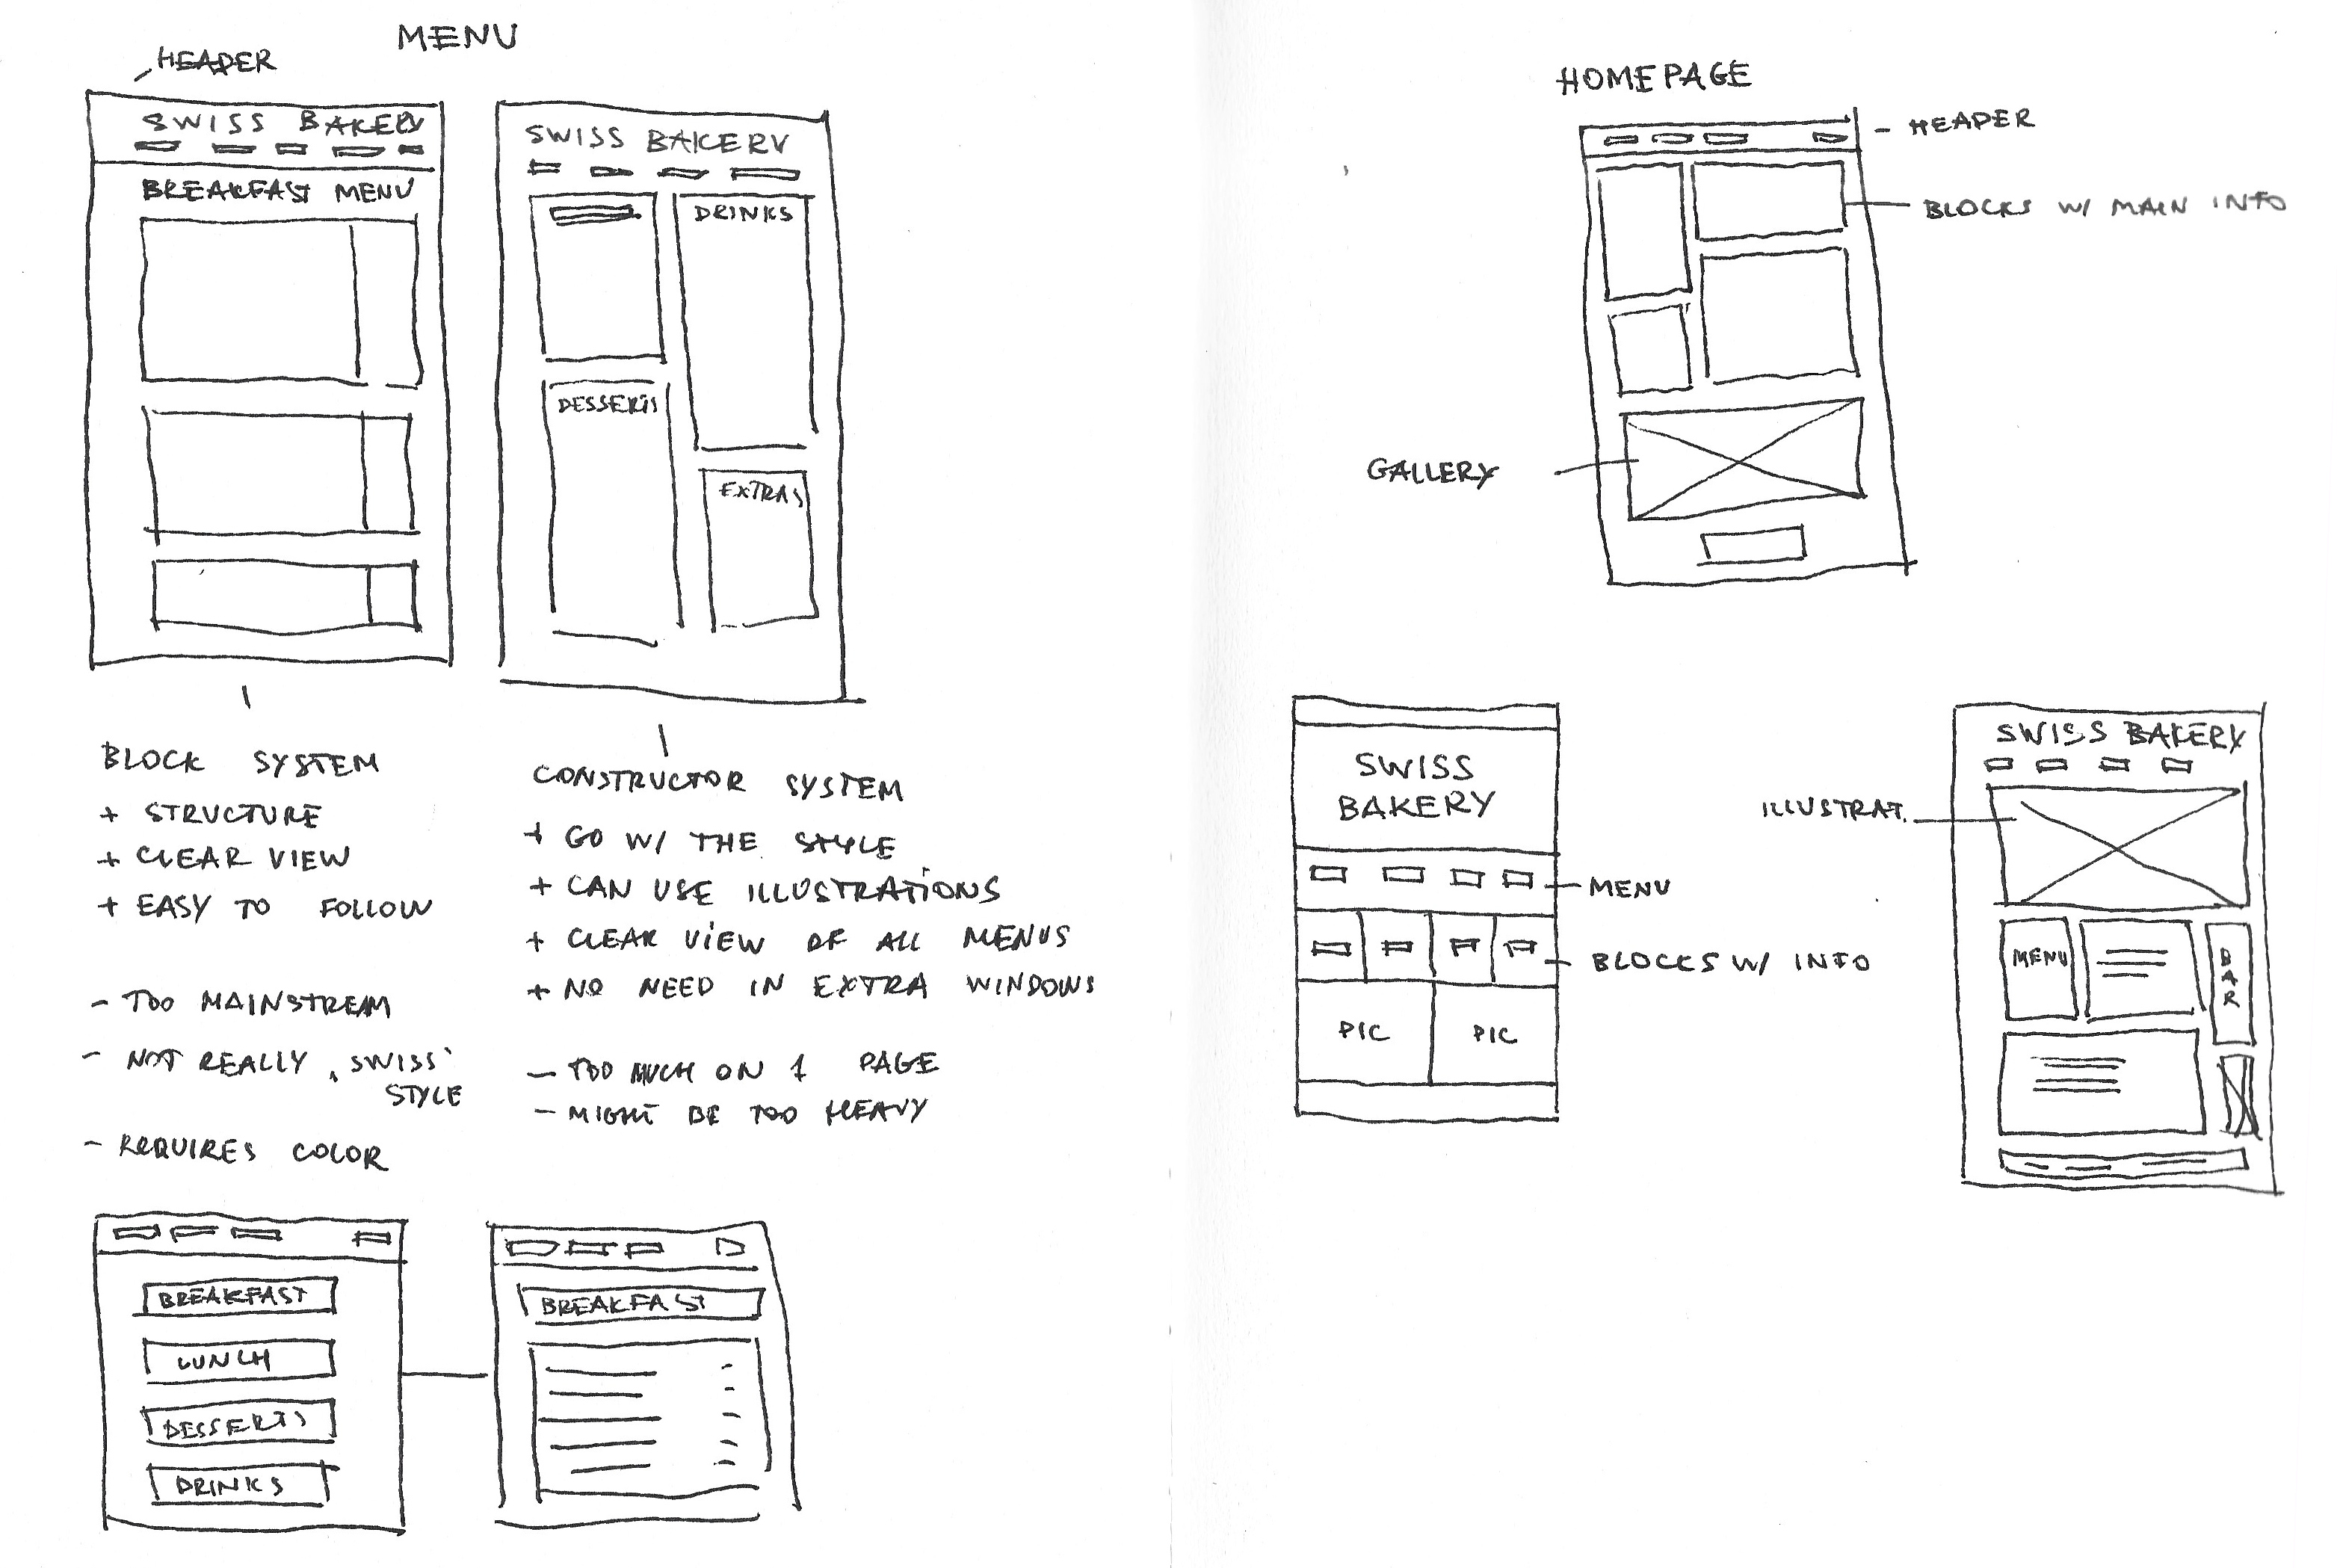 MENU
HEADER
SWISS BAKERY
BREAKFAST MENU
SWISS BAKERY
DRINKS
DESSERTS
EXTRAS
BLOCK SYSTEM
+ STRUCTURE
+ CLEAR VIEW
+ EASY TO FOLLOW
- TOO MAINSTREAM
- NOT REALLY ,SWISS'
STYLE
- REQUIRES COLOR
CONSTRUCTOR SYSTEM
+ GO W/ THE STYLE
+ CAN USE ILLUSTRATIONS
+ CLEAR VIEW OF ALL MENUS
+ NO NEED IN EXTRA WINDOWS
- TOO MUCH ON 1 PAGE
- MIGHT BE TOO HEAVY
BREAKFAST
LUNCH
DESSERTS
DRINKS
BREAKFAST
HOMEPAGE
HEADER
BLOCKS W/ MAIN INFO
GALLERY
SWISS
BAKERY
MENU
BLOCKS W/ INFO
PIC PIC
SWISS BAKERY
ILLUSTRAT.
MENU
BAR